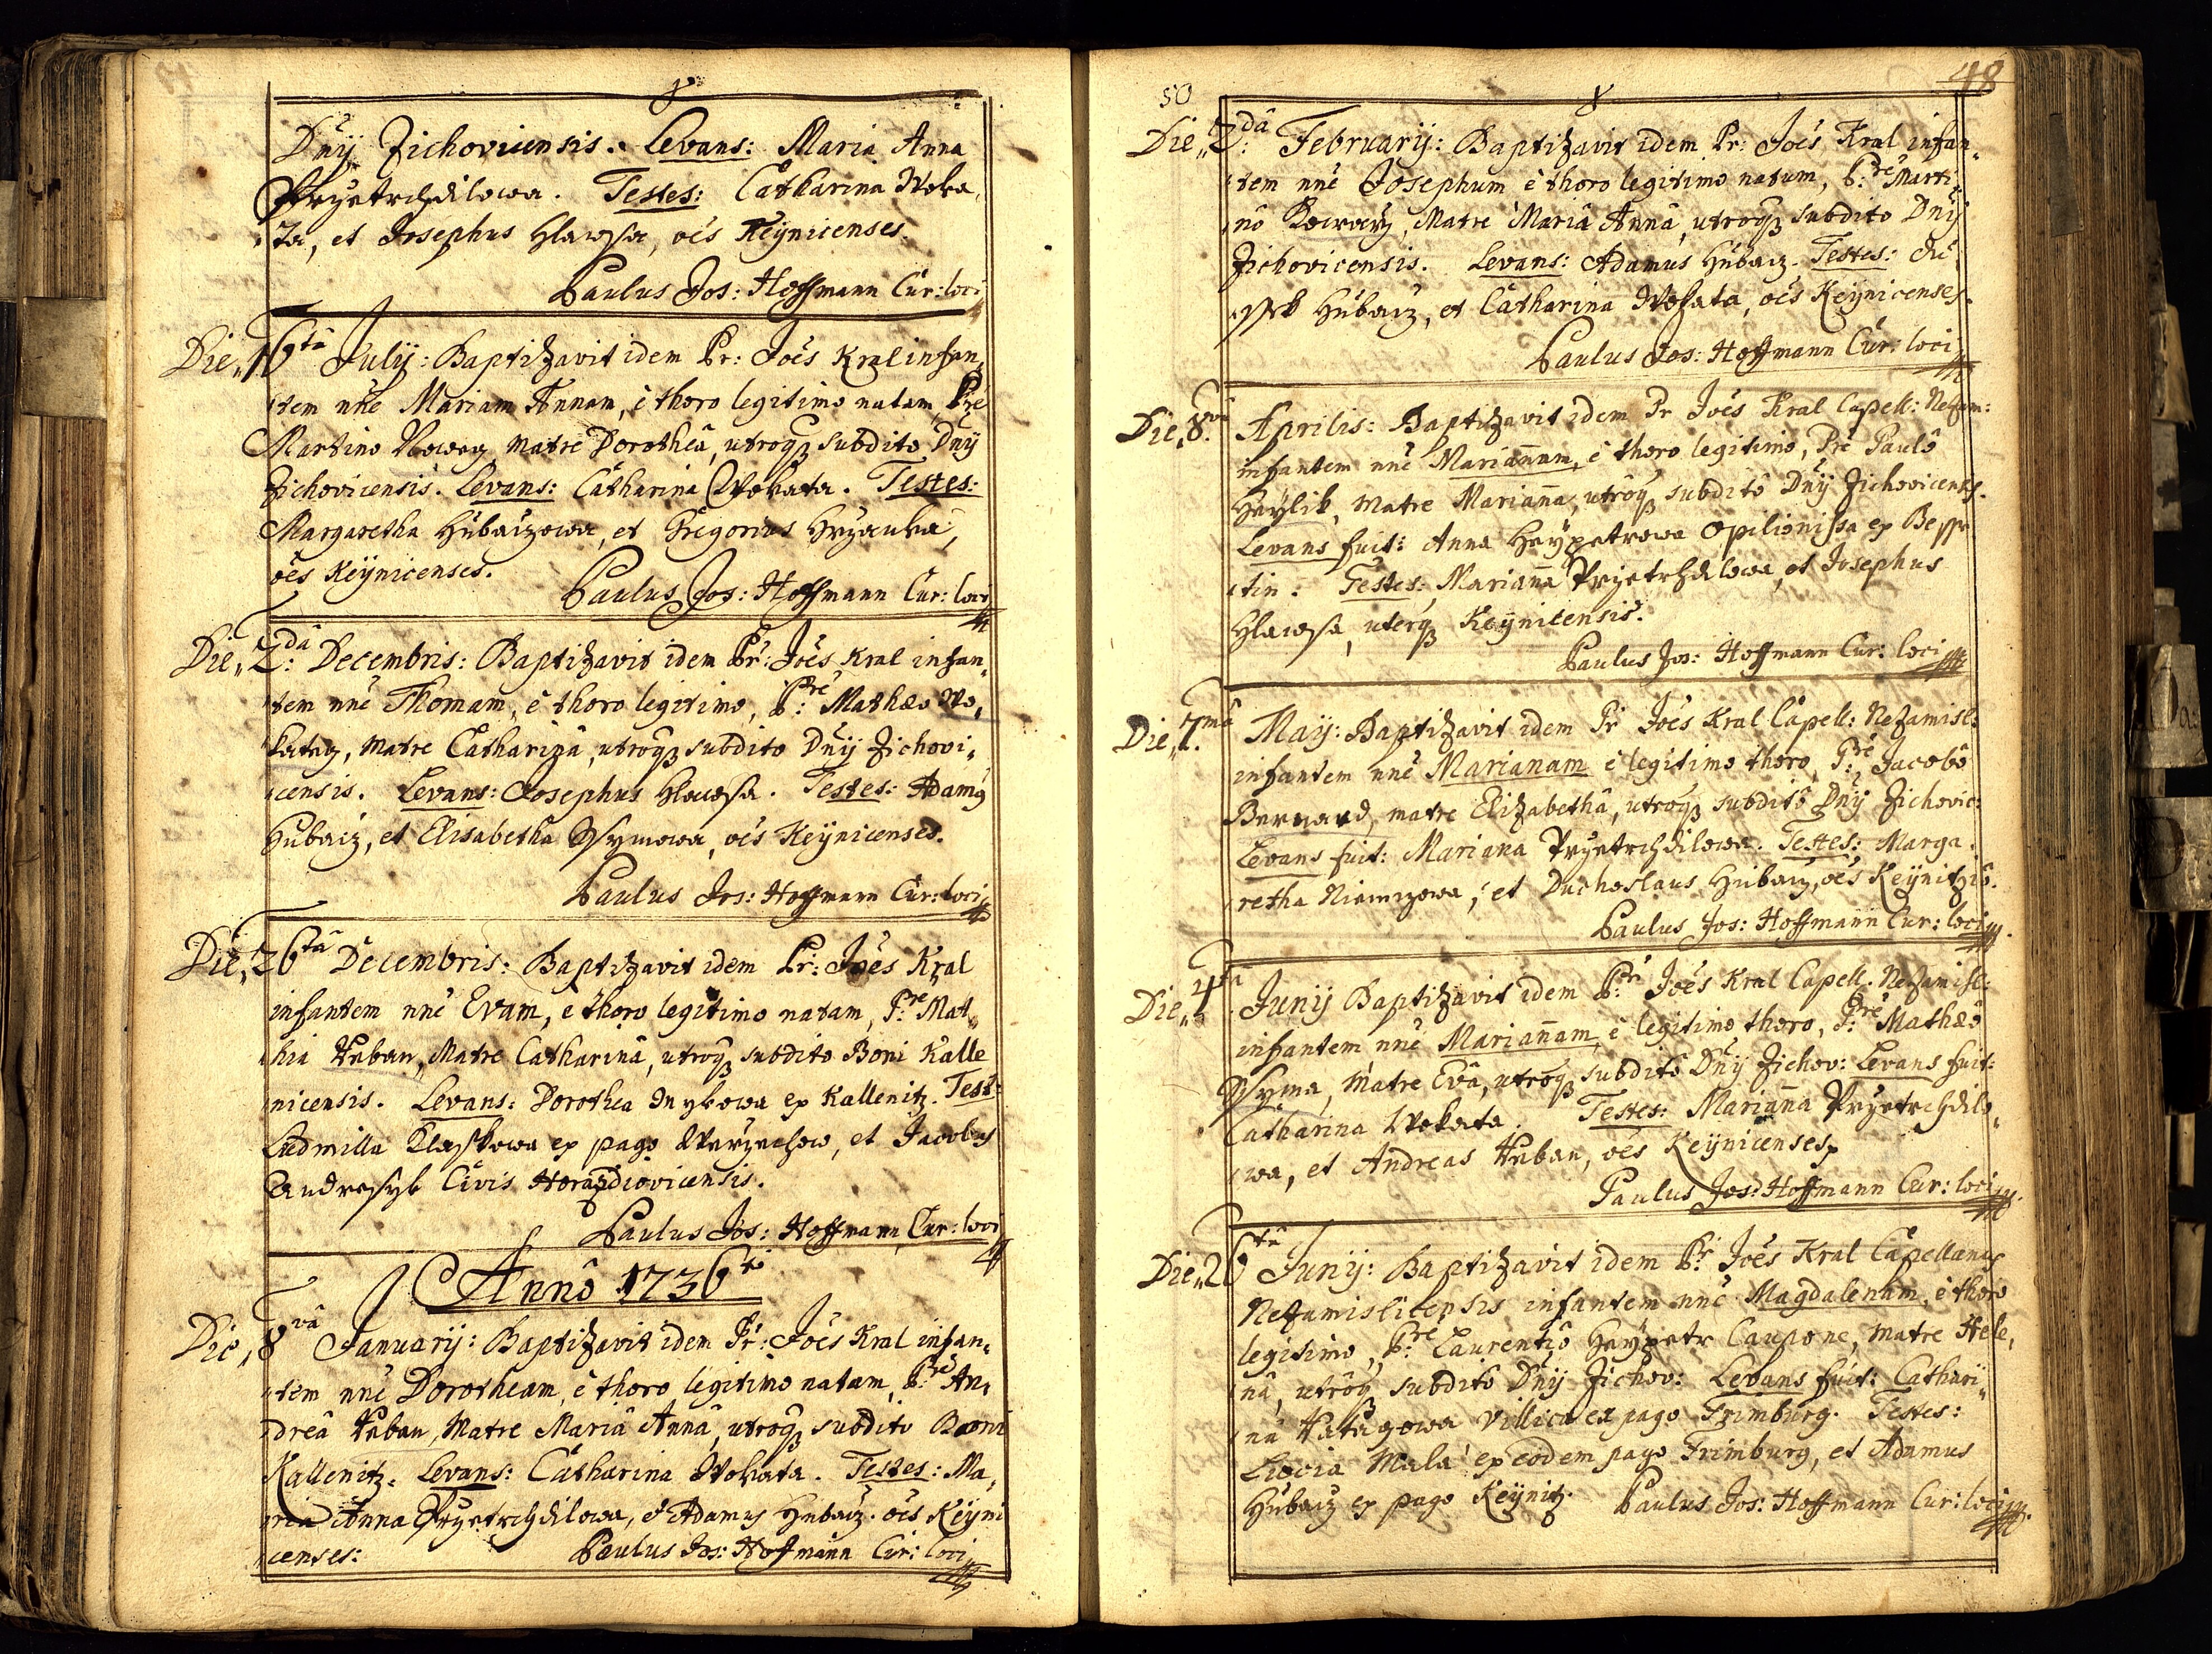 Dnỹ Zichovicensis. Levans: Maria Anna
Przetrchdilowa. Testes: Catharina Woka„
„ta, et Josephus Hlawsa, oes Keynicenses.
Paulus Jos: Hoffmann Cur: loci
Die 16ta July: Baptizavit idem Pr: Joës Kral infan„
„tem nne Mariam Annam, è thoro legitimo natam, Pre
Martino, Matre Dorotheâ, utroqꝫ subdito Dnỹ
Zichovicensis. Levans: Catharina Wokata. Testes:
Margaretha Hubaczowa, et Gregorius,
oes Keynicenses.
Paulus Jos: Hoffmann Cur: loci
Die 2dâ: Decembris: Baptizavit idem Pr: Joës Kral infan„
„tem nne Thomam, è thoro legitimo, P:re Mathæo Wo„
„katey, Matre Catharinâ, utroqꝫ subdito Dnỹ Zichovi„
„censis. Levans: Josephus Hlawsa. Testes: Adamꝰ
Hubacz, et Elisabetha Ssymowa, oes Keynicenses.
Paulus Jos: Hoffmann Cur: loci
Die 26tâ Decembris: Baptizavit idem Pr: Joës Kral
infantem nne Evam, è thoro legitimo natam, P:re Mat„
„hia Urban, Matre Catharinâ, utroqꝫ subdito Boni Kalle
„nicensis. Levans: Dorothea ex Kallenitz. Test:
Ludmilla ex pago, et Jacobus
Civis Horazdiovicensis.
Paulus Jos: Hoffmann Cur: loci
Annô 1736to
Die 8vâ Januarij: Baptizavit idem Pr: Joës Kral infan„
„tem nne Dorotheam, è thoro legitimo natam, P:re An„
„dreâ Urban, Matre Mariâ Annâ, utroqꝫ subdito Boni
Kallenitz. Levans: Catharina Wokata. Testes: Ma„
„ria Anna Przetrchdilowa, et Adamus Hubacz. oes Keyni
„censes: Paulus Jos: Hoffmann Cur: loci
50
48
Die 2:dâ Februarij: Baptizavit idem Pr: Joës Kral infan„
„tem nne Josephum è thoro legitimo natum, P:re Marti„
„nô Kowarz, Matre Mariâ Annâ, utroqꝫ subdito Dnỹ
Zichovicensis. Levans: Adamus Hubacz. Testes:
Hubacz, et Catharina Wokata, oes Keynicenses.
Paulus Jos: Hoffmann Cur: loci
Die 8:vâ Aprilis: Baptizavit idem Pr Joës Kral Capell: Nezam:
infantem nne Mariañam, è thoro legitimo, Pre Paulô
Hrzylik, Matre Mariaña, utroqꝫ subditô Dnỹ Zichovicens.
Levans fuit: Anna Haypetrowa Opilionissa ex Bessе
„tin. Testes: Mariaña Przetrchdilowa, et Josephus
Hlawsa, uterqꝫ Keynicensis.
Paulus Jos: Hoffmann Cur: loci
Die 7:mâ May: Baptizavit idem Pr Joës Kral Capell: Nezamisl:
infantem nne Marianam è legitimo thoro, P:re Jacobô
Bernard, matre Elizabethâ, utroqꝫ subditô Dnỹ Zichovic:
Levans fuit: Mariana Przetrchdilowa. Testes: Marga„
„retha Niemczowa, et Duchoslaus Hubacz, oes
Paulus Jos: Hoffmann Cur: loci
Die 4tâ Junij Baptizavit idem P:r Joës Kral Capell: Nezamisl:
infantem nne Mariañam, è legitimo thoro, P:re Mathæô
Ssyma, Matre Evâ, utroqꝫ subditô Dnỹ Zichov: Levans fuit:
Catharina Wokata. Testes: Mariaña Przetrchdilo„
„wa, et Andreas Urban, oes Keynicenses
Paulus Jos: Hoffmann Cur: loci
Die 26tâ Junij: Baptizavit idem P:r Joës Kral Capellanus
Nezamislicensis infantem nne Magdalenam, è thoro
legitimo, P:re Laurentiô Haypetr Caupone, Matre Hele„
„nâ, utroqꝫ subditô Dnỹ Zichov: Levans fuit: Cathari„
„na Villica ex pago Frimburg. Testes:
Mala ex eodem pago Frimburg, et Adamus
Hubacz ex pago Keynitz. Paulus Jos: Hoffmann Cur: loci